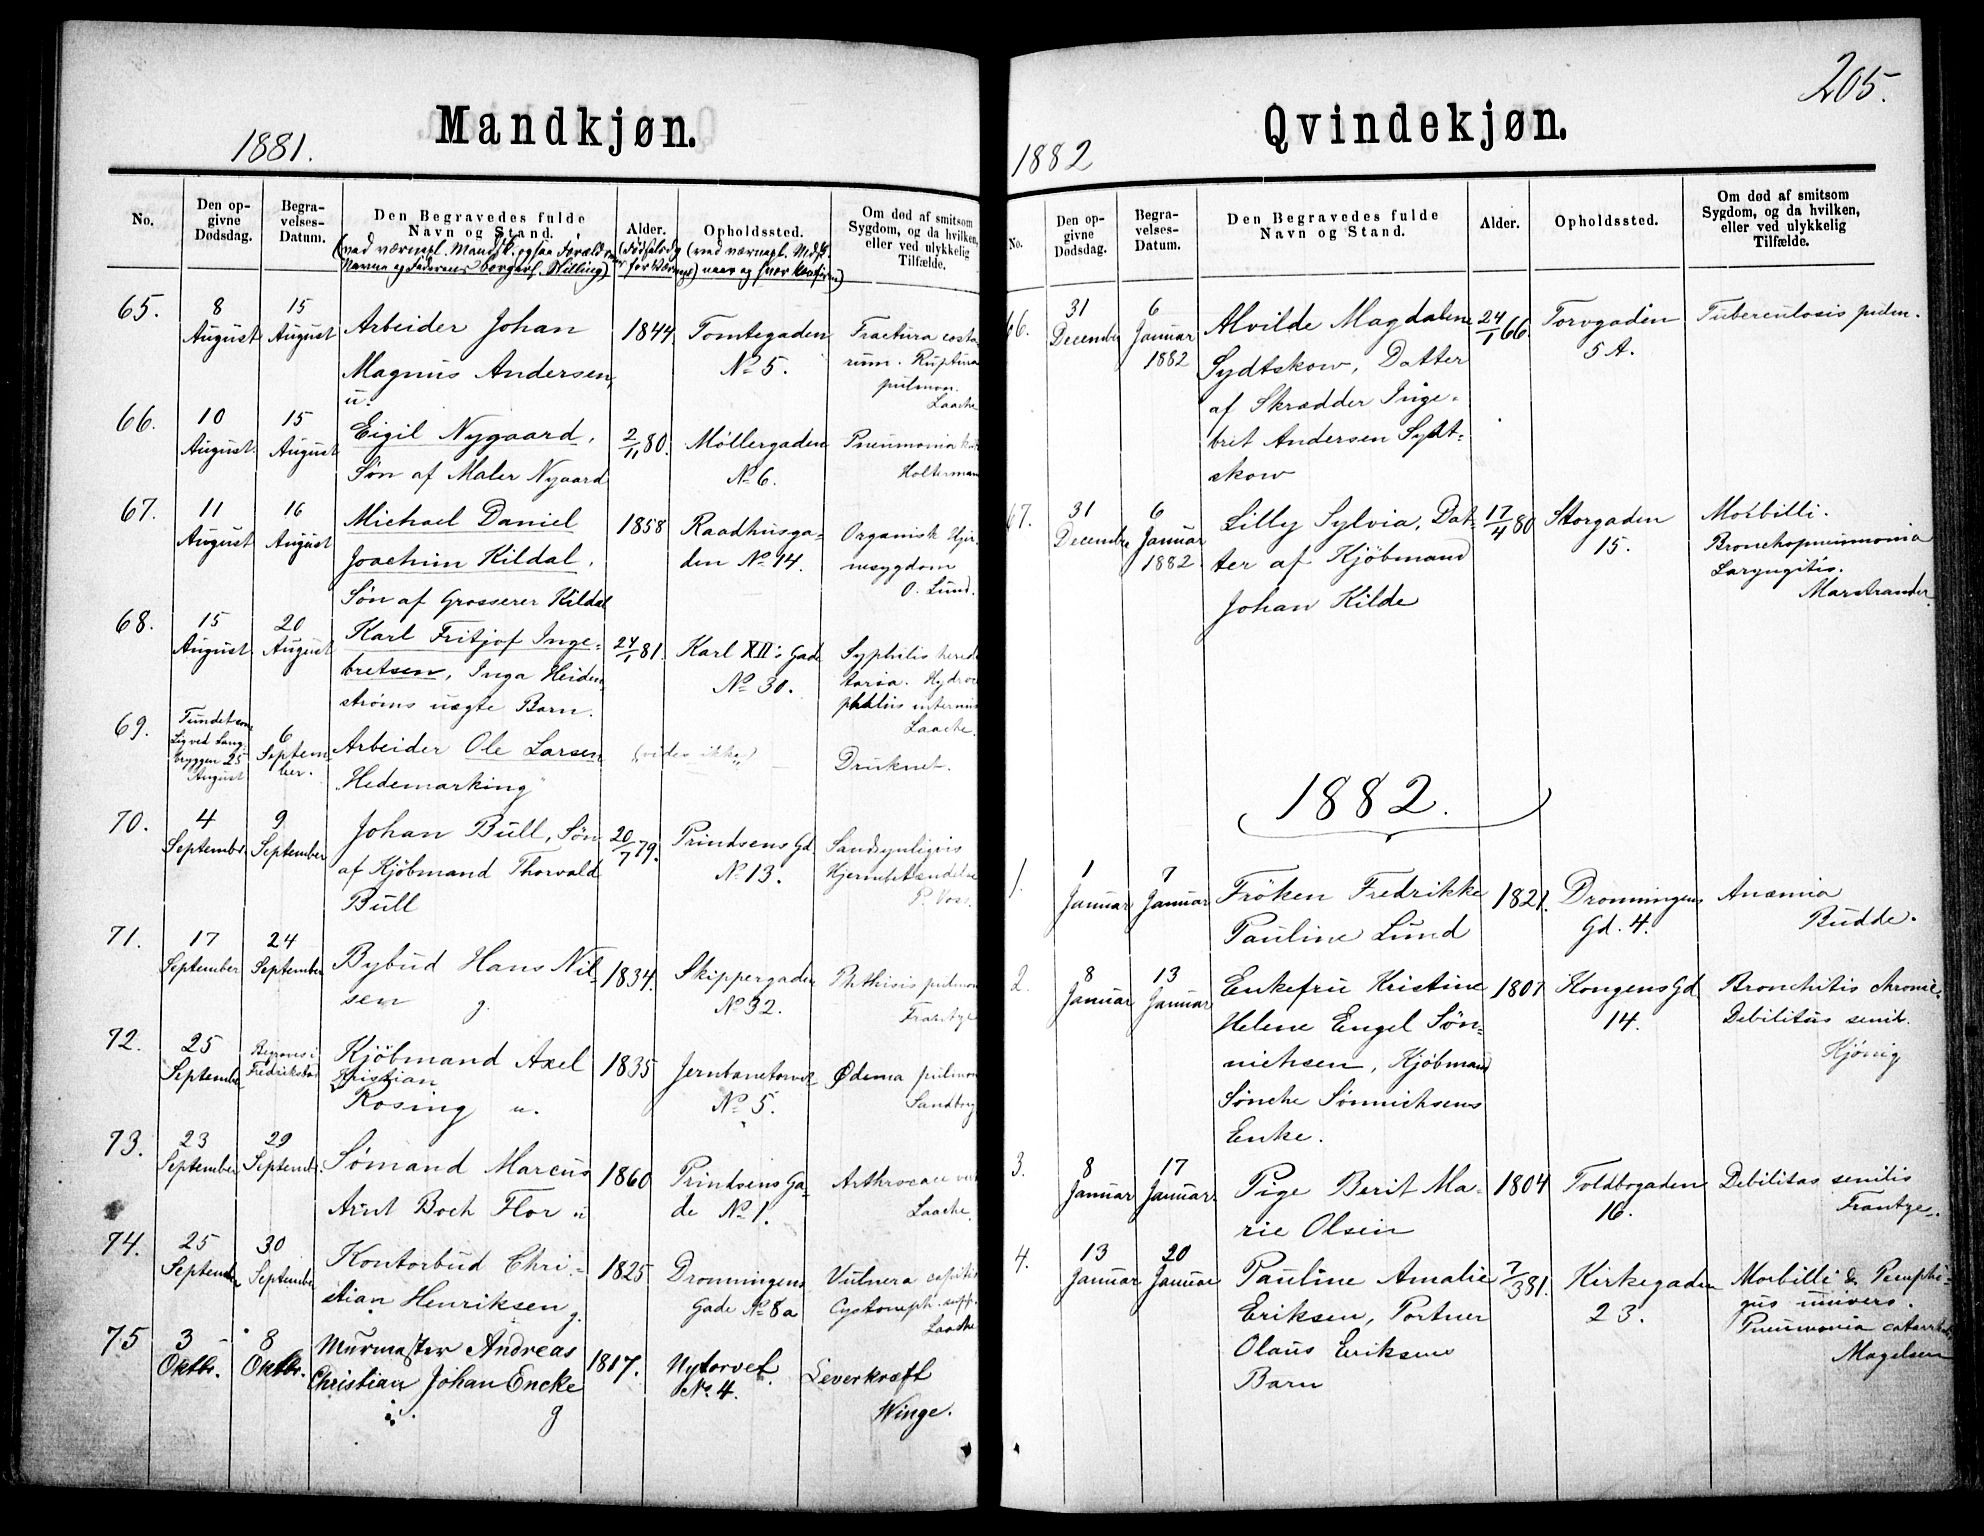 205.
Mandkjøn.
1881.
No.
Den op-
givne
Dødsdag.
Begra-
velses-
Datum.
Den Begravedes fulde
Navn og Stand.
Alder.
Opholdssted.
Om død af smitsom
Sygdom, og da hvilken,
eller ved ulykkelig
Tilfælde.
65.
8
August
15
August
Arbeider Johan
Magnus Andersen,
u.
1844
Tomtegaden
No 5.
Fractura costa
rum. Ruptura
pulmon.
Laache
66.
10
August.
15
August
Eigil Nygaard,
Søn af Maler Nygaard
2/11 80.
Møllergaden
No 6.
Pneumonia
Holterman
67.
11
August
16
August
Michael Daniel
Joachim Kildal,
Søn af Grosserer Kildal
1858
Raadhusga-
den No 14.
Organisk Hjer-
nesygdom
O. Lund.
68.
15
August
20
August
Karl Fritjof Inge-
bretsen, Inga Heiden-
strøms uægte Barn.
24/1 81.
Karl XII's Gade
No 30.
Syphilis heredi
taria. Hydroce
phalus internus
Laache.
69.
Fundet som
Lig ved Lang-
bryggen 25
August
6
Septem-
ber.
Arbeider Ole Larsen
"Hedemarking"
(vides ikke)
—
Druknet.
70.
4
Septembr.
9
September
Johan Bull, Søn
af Kjöbmand Thorvald
Bull
20/7 79.
Prindsens Gd.
No 13.
Sandsynligvis
Hjernebetændelse
P. Voss.
71.
17
September
24
September
Bybud Hans Nil-
sen g.
1834.
Skippergaden
No 32.
Phthisis pulmon
Frantze
72.
25
September
Begraves i
Fredrikstad
Kjöbmand Axel
Kristian
Rosing u.
1835
Jernbanetorvet
No 5.
Ødema pulmon
Sandborg
73.
23
September
29
Septemb.
Sømand Marcus
Arnt Boch Flor u
1860
Prindsens Ga-
de No 1.
Arthrocace
Laache.
74.
25
September
30
September
Kontorbud Chri-
stian Henriksen
g.
1825
Dronningens
Gade No 8a
Vulnera capitis
Cystoneph. supp.
Laache
75
3
Oktbr.
8
Oktbr.
Murmester Andreas
Christian Johan Encke
g
1817.
Nytorvet
No. 4.
Leverkræft
Winge.
Qvindekjøn.
1882
No.
Den op-
givne
Dødsdag.
Begra-
velses-
Datum.
Den Begravedes fulde
Navn og Stand.
Alder.
Opholdssted.
Om død af smitsom
Sygdom, og da hvilken,
eller ved ulykkelig
Tilfælde.
66.
31
December
6
Januar
1882
Alvilde Magdalene
Sydtskow, Datter
af Skrædder Inge-
bret Andersen Sydt-
skow
24/1 66.
Torvgaden
5 A.
Tuberculosis pulm.
67.
31
Decembr
6
Januar
1882
Lilly Sylvia, Dat-
ter af Kjöbmand
Johan Kilde
17/4 80
Storgaden
15.
Morbilli.
Bronchopneumonia
Laryngitis.
Marstrander.
1882.
1.
1
Januar
7
Januar
Fröken Fredrikke
Pauline Lund
1821.
Dronningens
Gd. 4.
Anæmia
Budde.
2.
8
Januar
13
Januar
Enkefru Kristine
Helene Engel Søn-
nichsen, Kjöbmand
Sønche Sønnichsens
Enke.
1807
Kongens Gd
14.
Bronchitis chronic.
Debilitas senil.
Kjönig
3.
8
Januar
17
Januar
Pige Berit Ma-
rie Olsen
1804
Toldbogaden
16.
Debilitas senilis
Frantze.
4.
13
Januar
20
Januar
Pauline Amalie
Eriksen, Portner
Olaus Eriksens
Barn
7/3 81.
Kirkegaden
23.
Morbilli & Pemphi-
gus univers.
Pneumonia catarrhal.
Magelsen